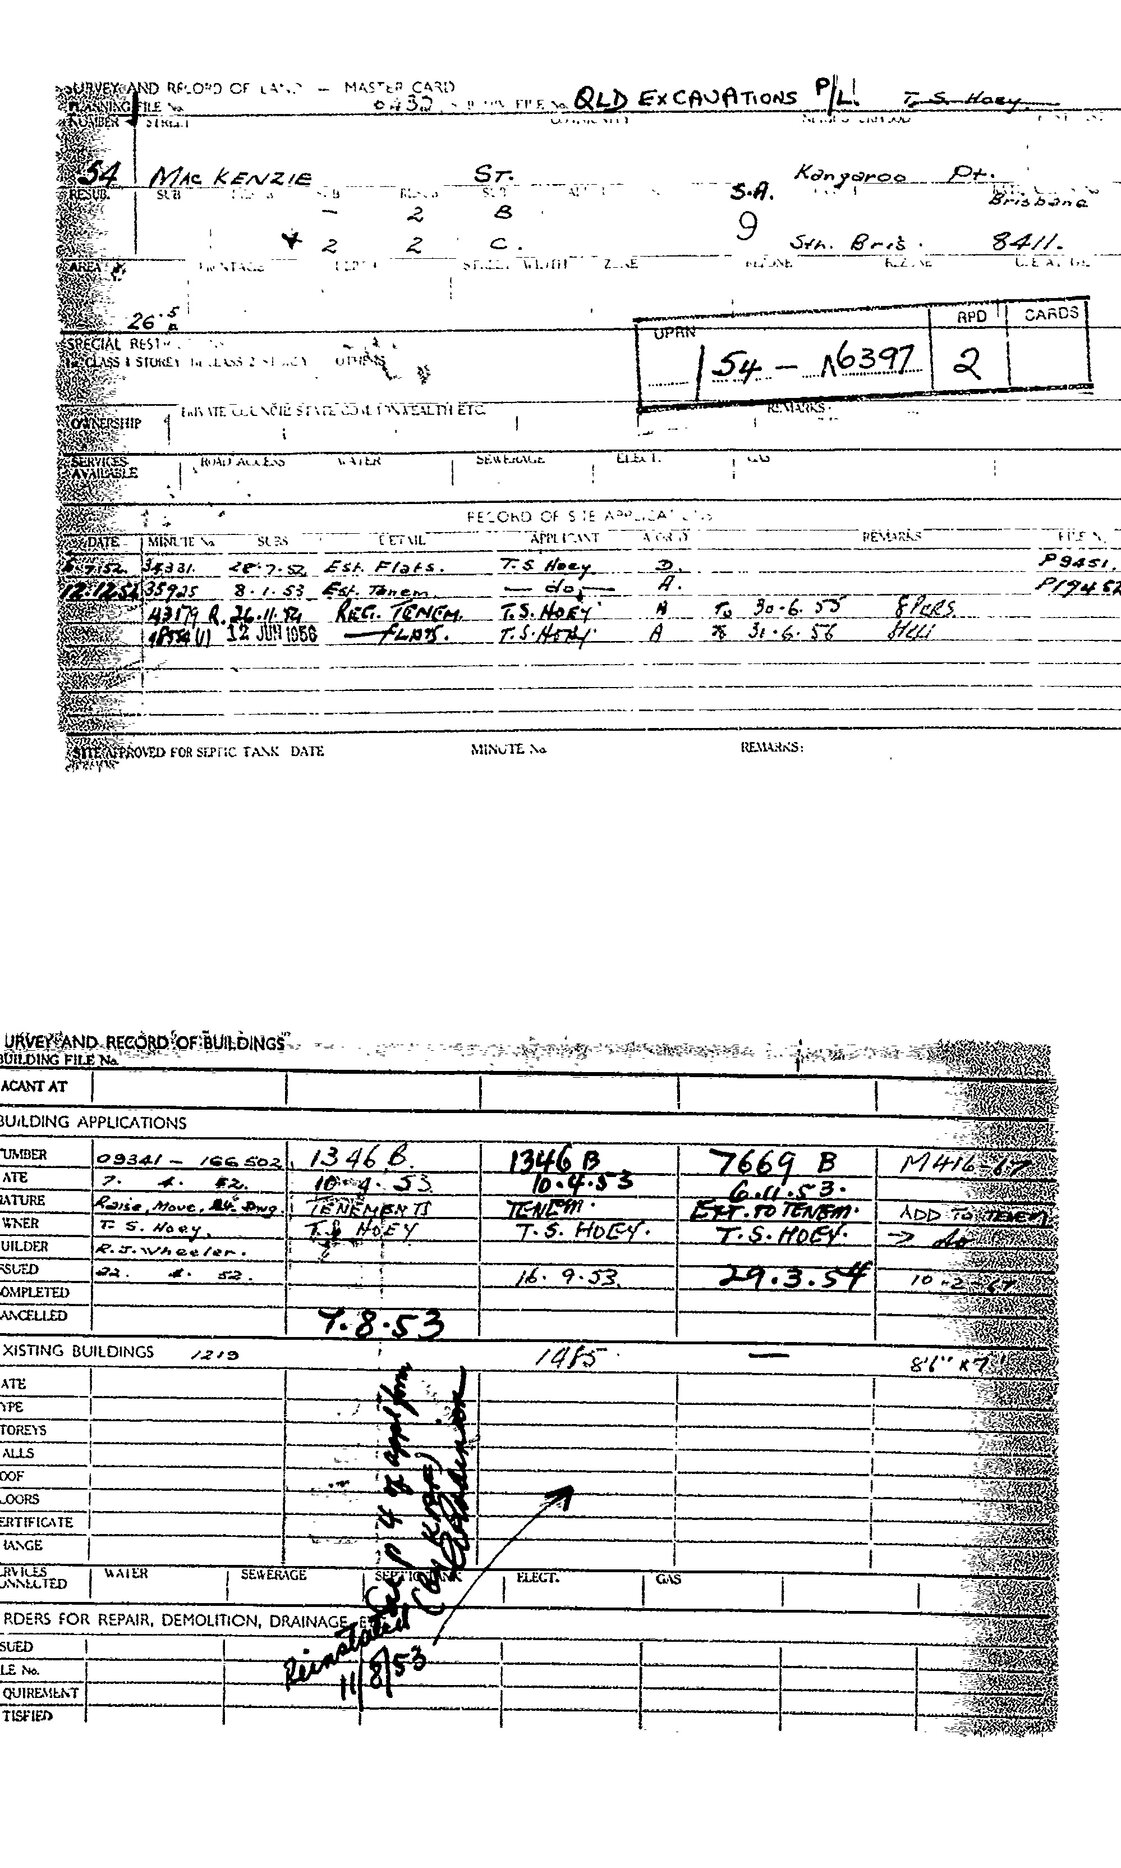 SURVEY AND RECORD OF LAND — MASTER CARD
PLANNING FILE No. 0432 FILE No. QLD EXCAVATIONS P/L. T. S. Hoey
NUMBER STREET
54 MACKENZIE ST. Kangaroo Pt.
RESUB. SUB S.A. Brisbane
— 2 B
2 2 C. 9 Sth. Bris. 8411.
AREA FRONTAGE DEPTH STREET WIDTH ZONE REZONE REZONE
26.5
SPECIAL RESTRICTIONS
CLASS 1 STOREY CLASS 2 STOREY OTHERS
UPRN RPD CARDS
54 — 6397 2
OWNERSHIP PRIVATE COUNCIL STATE COMMONWEALTH ETC. REMARKS:
SERVICES AVAILABLE ROAD ACCESS WATER SEWERAGE ELECT. GAS
RECORD OF SITE APPLICATIONS
DATE MINUTE No. SUBS DETAIL APPLICANT A OR D REMARKS FILE No.
7.52. 34331. 28.7.52 Est. Flats. T.S. Hoey D. P9451.
12.12.52 35925 8.1.53 Est. Tenem. — do — A. P19452
43179 R. 26.11.54 REG. TENEM. T.S. HOEY A To 30.6.55 8 PERS.
12 JUN 1956 — FLATS. T.S. HOEY A 31.6.56
SITE APPROVED FOR SEPTIC TANK DATE MINUTE No. REMARKS:
URVEY AND RECORD OF BUILDINGS
BUILDING FILE No.
ACANT AT
BUILDING APPLICATIONS
UMBER 09341 — 166502. 1346 B. 1346 B 7669 B M416-67
ATE 7. 4. 52. 10.4.53. 10.4.53 6.11.53.
ATURE Raise, Move, Dwg. TENEMENTS TENEM. EXT. TO TENEM. ADD TO TENEM.
WNER T. S. Hoey. T.S HOEY T.S. HOEY. T.S. HOEY. → do
UILDER R.J. Wheeler.
SSUED 22. 4. 52. 16.9.53. 29.3.54 10-2-67
OMPLETED
ANCELLED 7.8.53
XISTING BUILDINGS 1219 1485 — 8'6" x 7'
ATE
YPE
TOREYS
ALLS
OOF
LOORS
ERTIFICATE
HANGE
RVICES ONNECTED WATER SEWERAGE SEPTIC TANK ELECT. GAS
RDERS FOR REPAIR, DEMOLITION, DRAINAGE, E
SUED
LE No.
QUIREMENT
TISFIED
Reinstated
11/8/53
See p 4 of appl form